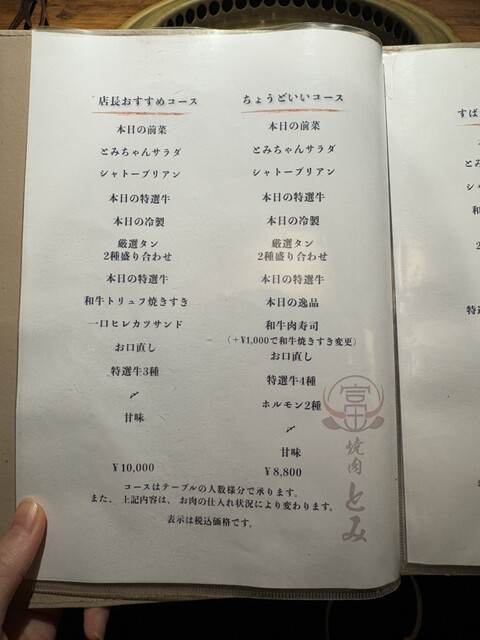 店長おすすめコース
本日の前菜
とみちゃんサラダ
シャトーブリアン
本日の特選牛
本日の冷製
厳選タン
2種盛り合わせ
本日の特選牛
和牛トリュフ焼きすき
一口ヒレカツサンド
お口直し
特選牛3種
〆
甘味
¥10,000
ちょうどいいコース
本日の前菜
とみちゃんサラダ
シャトーブリアン
本日の特選牛
本日の冷製
厳選タン
2種盛り合わせ
本日の特選牛
本日の逸品
和牛肉寿司
(+¥1,000で和牛焼きすき変更)
お口直し
特選牛4種
ホルモン2種
〆
甘味
¥8,800
コースはテーブルの人数様分で承ります。
また、上記内容は、お肉の仕入れ状況により変わります。
表示は税込価格です。
焼肉とみ
すば